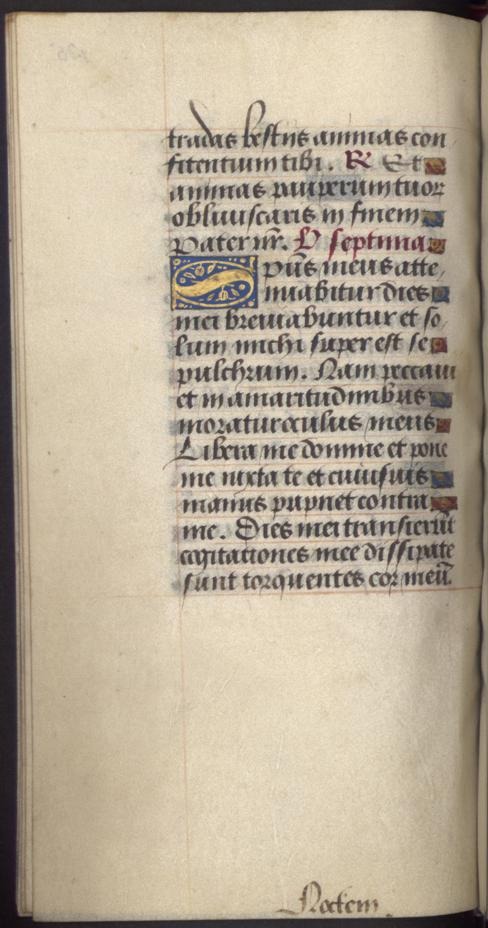 tradas bestiis animas con
fitentium tibi. R Et
animas pauperum tuor
obliuiscaris in finem
Pater nr̄. L septima
Spūs meus atte
nuabitur dies
mei breuiabuntur et so
lum michi super est se
pulchrum. Nam peccaui
et in amaritudinibus
moratur oculus meus
Libera me domine et pone
me iuxta te et cuiusuis
manus pugnet contra
me. Dies mei transierūt
cogitationes mee dissipate
sunt torquentes cor meū.
Noctem